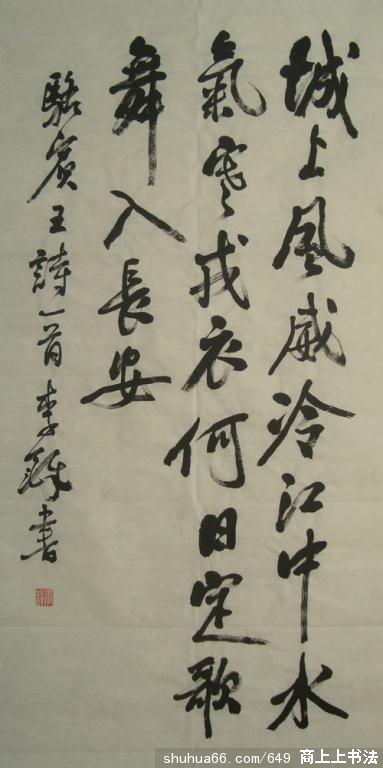 城上風威冷江中水
氣寒戎衣何日定歌
舞入長安
駱賓王詩一首李
書
shuhua66.com/649 商上上书法